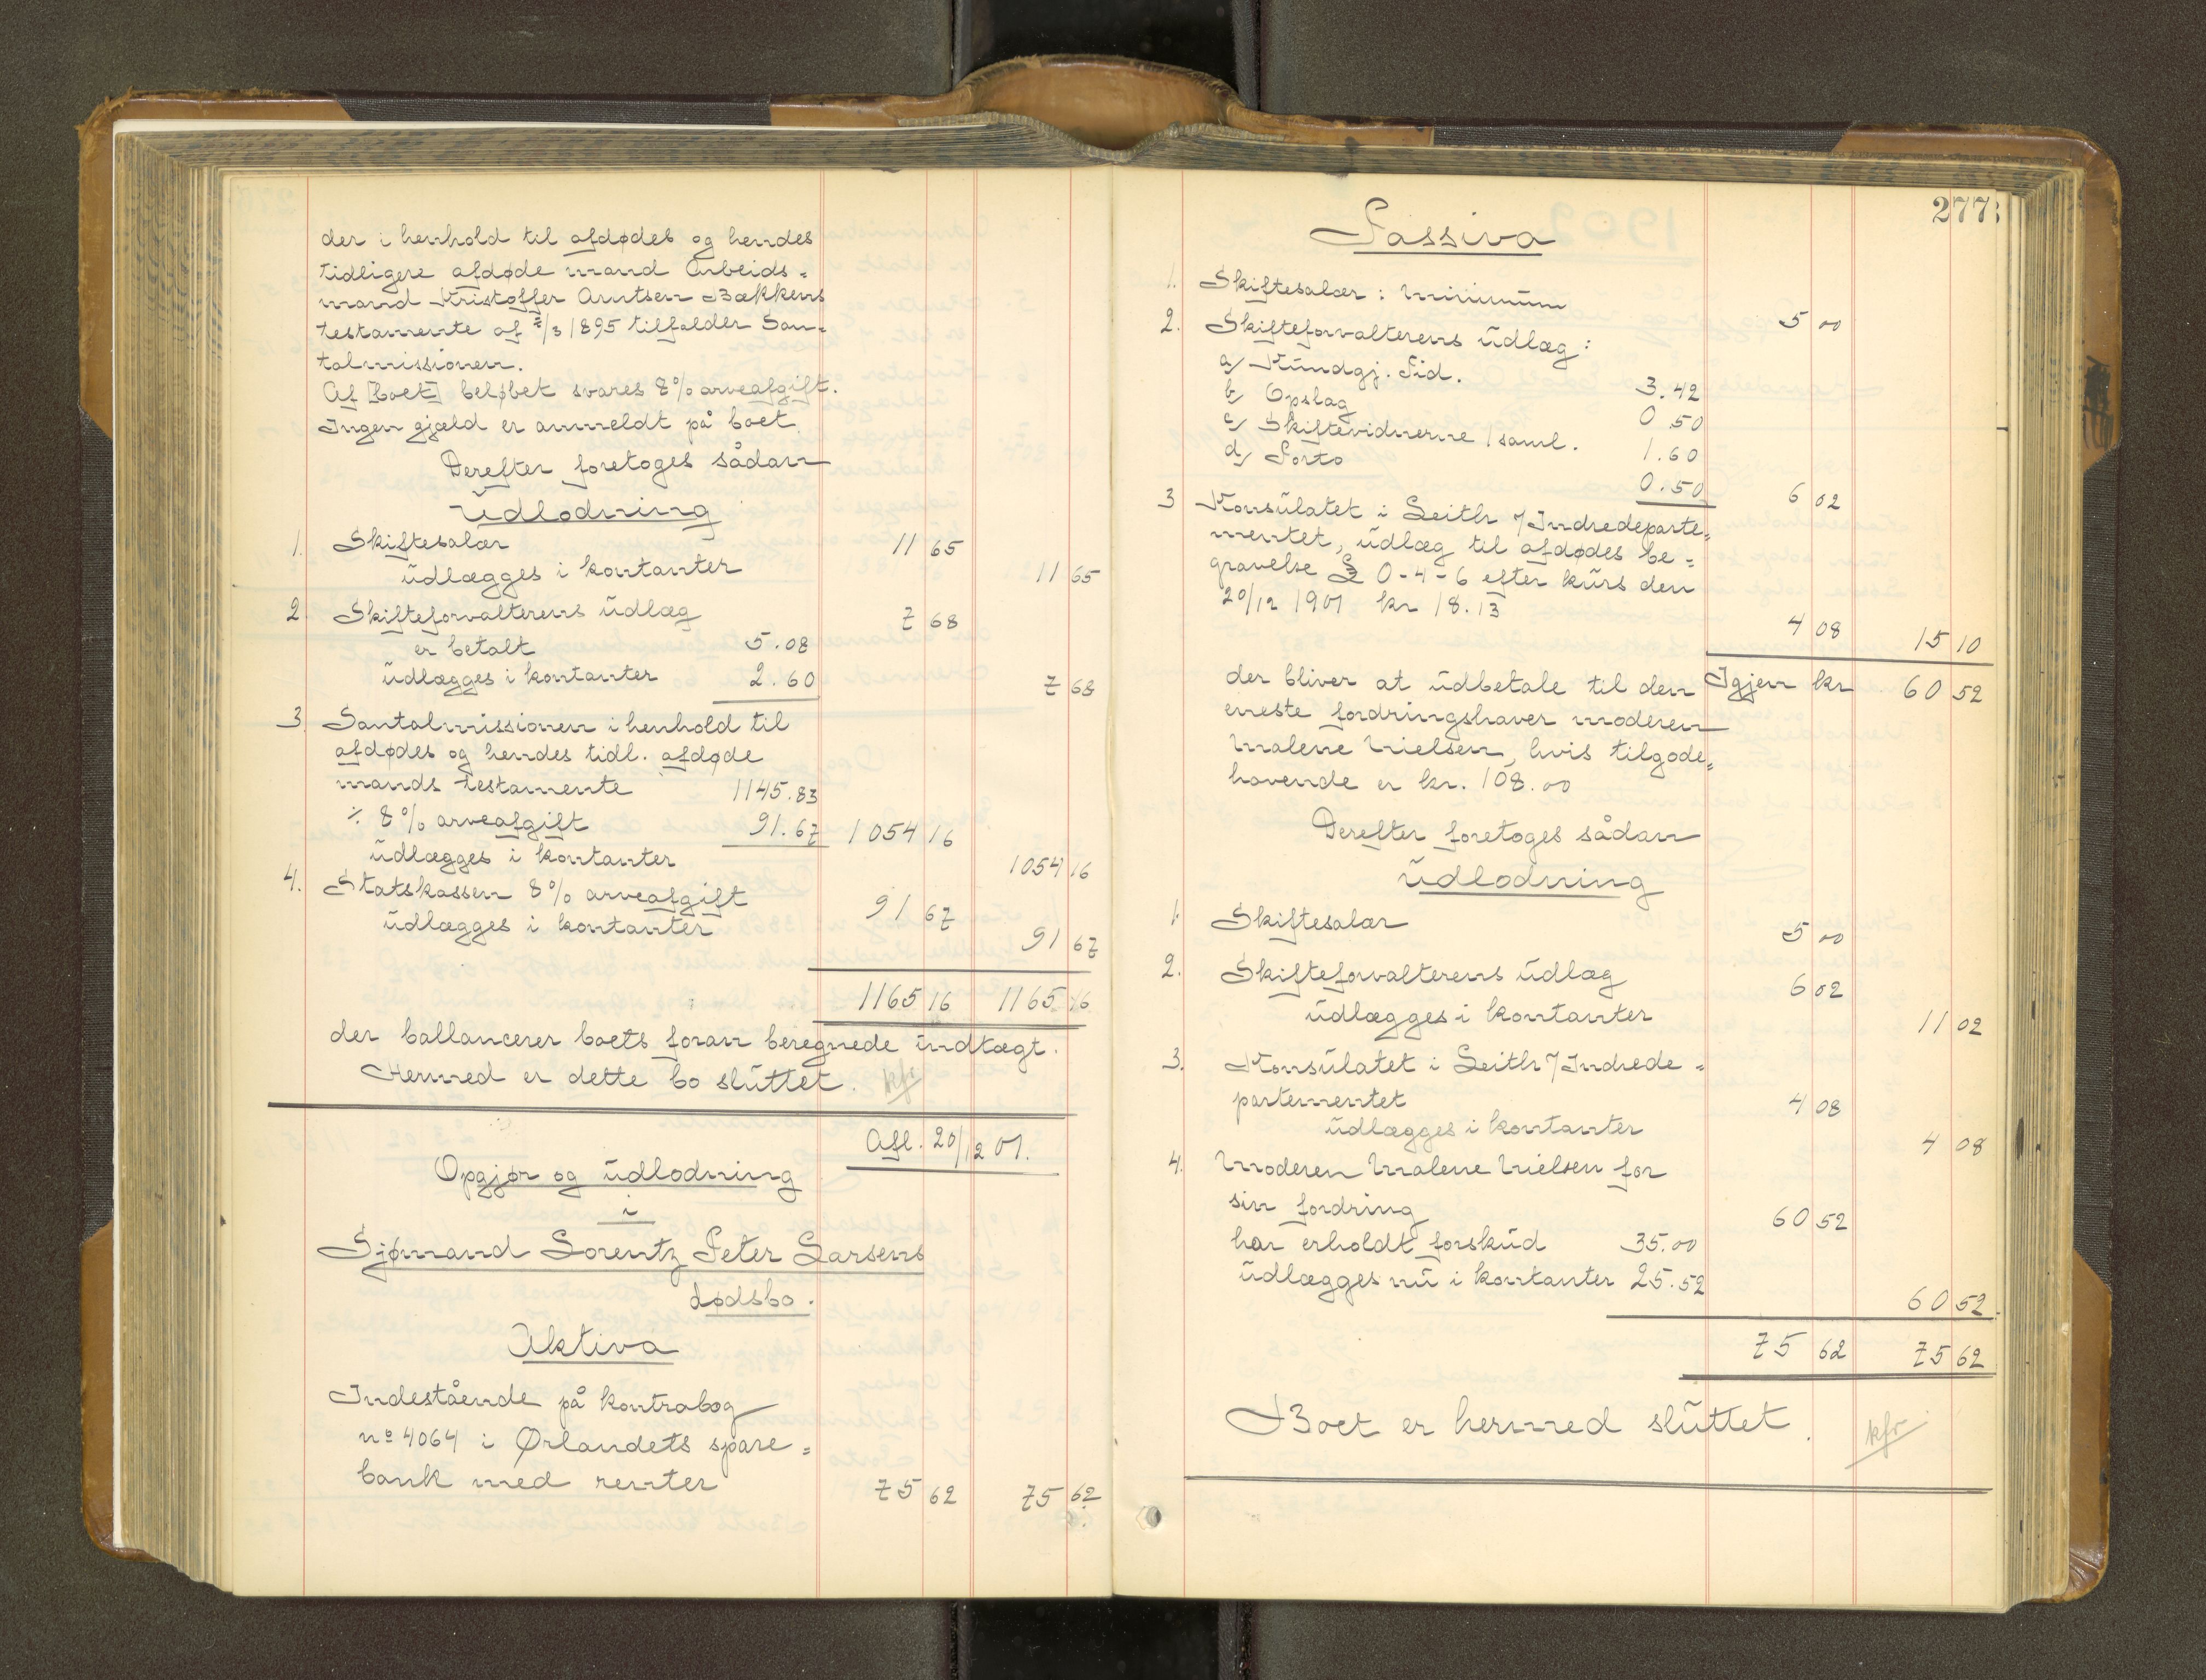 der i henhold til afdødes og hendes
tidligere afdøde mand Arbeids=
mand Kristoffer Arntsen Bækkens
testamente af /3 1895 tilfalder San=
talmissionen.
Af [boet] beløbet svares 8% arveafgift.
Ingen gjæld er anmeldt på boet.
Derefter foretoges sådan
Udlodning
1. Skiftesalær 11 65
udlægges i kontanter 11 65
2. Skifteforvalterens udlæg 7 68
er betalt 5.08
udlægges i kontanter 2.60 7 68
3. Santalmissionen i henhold til
afdødes og hendes tidl. afdøde
mands testamente 1145.83
÷ 8% arveafgift 91.67 1054 16
udlægges i kontanter 1054 16
4. Statskassen 8% arveafgift 91 67
udlægges i kontanter 91 67
1165 16 1165 16
der ballancerer boets foran beregnede indtægt.
Hermed er dette bo sluttet. kfr
Afl. 20/12 01.
Opgjør og udlodning
i
Sjømand Lorentz Peter Larsens
dødsbo.
Aktiva
Indestående på kontrabog
nº 4064 i Ørlandets spare=
bank med renter 75 62 75 62
277
Passiva
1. Skiftesalær: minimum 5 00
2. Skifteforvalterens udlæg:
a/ Kundgj. Tid. 3.42
b/ Opslag 0.50
c/ Skiftevidnerne 1 saml. 1.60
d/ Porto 0.50 6 02
3 Konsulatet i Leith / Indredeparte=
mentet, udlæg til afdødes be=
gravelse £ 0-4-6 efter kurs den
20/12 1901 kr 18.13 4 08 15 10
Igjen kr 60 52
der bliver at udbetale til den
eneste fordringshaver moderen
Malene Nielsen, hvis tilgode=
havende er kr. 108.00
Derefter foretoges sådan
Udlodning
1. Skiftesalær 5 00
2. Skifteforvalterens udlæg 6 02
udlægges i kontanter 11 02
3. Konsulatet i Leith / Indrede=
partementet 4 08
udlægges i kontanter 4 08
4. Moderen Malene Nielsen for
sin fordring 60 52
har erholdt forskud 35.00
udlægges nu i kontanter 25.52 60 52.
75 62 75 62
Boet er hermed sluttet. kfr